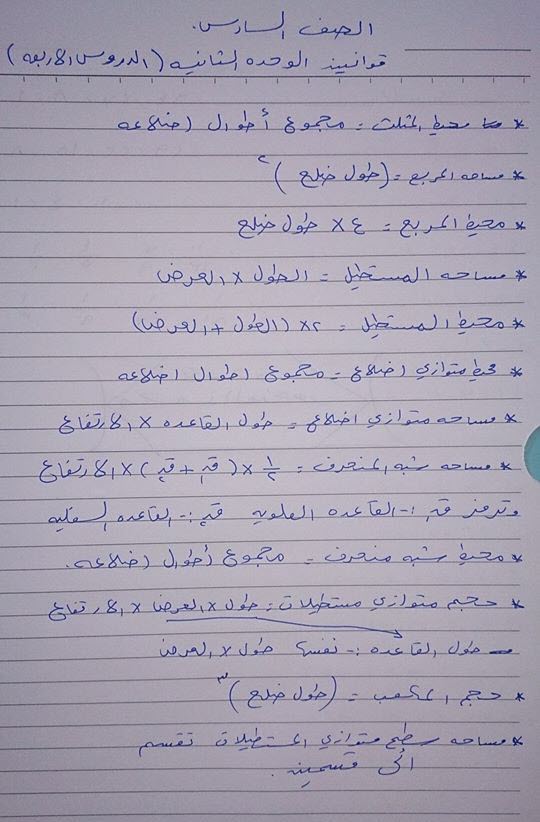 الصف السادس.
قوانين الوحده الثانيه (الدروس الاربعه)
* محيط المثلث = مجموع أطوال اضلاعه
* مساحه المربع = (طول ضلع)٢
* محيط المربع = ٤ × طول ضلع
* مساحه المستطيل = الطول × العرض
* محيط المستطيل = ٢× (الطول + العرض)
* محيط متوازي اضلاع = مجموع اطوال اضلاعه
* مساحه متوازي اضلاع = طول القاعده × الارتفاع
* مساحه شبه المنحرف = ١/٢ × (ق١ + ق٢) × الارتفاع
وترمز ق١ :- القاعده العلويه ق٢ :- القاعده السفليه
* محيط شبه منحرف = مجموع أطوال اضلاعه.
* حجم متوازي مستطيلات = طول × العرض × الارتفاع
طول القاعده :- نفسها طول × العرض
* حجم المكعب = (طول ضلع)٣
* مساحه سطح متوازي المستطيلات تقسم
الى قسمين.